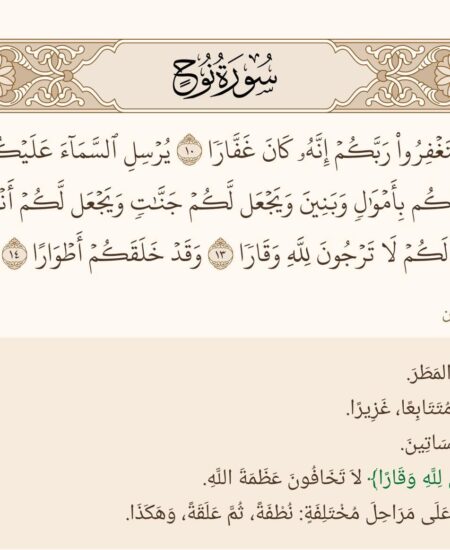 سُورَةُ نُوحٍ
تَغْفِرُوا۟ رَبَّكُمْ إِنَّهُۥ كَانَ غَفَّارًا ١٠ يُرْسِلِ ٱلسَّمَآءَ عَلَيْكُ
كُم بِأَمْوَٰلٍ وَبَنِينَ وَيَجْعَل لَّكُمْ جَنَّٰتٍ وَيَجْعَل لَّكُمْ أَنْ
لَكُمْ لَا تَرْجُونَ لِلَّهِ وَقَارًا ١٣ وَقَدْ خَلَقَكُمْ أَطْوَارًا ١٤
المَطَرَ.
مُتَتَابِعًا، غَزِيرًا.
سَاتِينَ.
لِلَّهِ وَقَارًا﴾ لَا تَخَافُونَ عَظَمَةَ اللَّهِ.
عَلَى مَرَاحِلَ مُخْتَلِفَةٍ: نُطْفَةً، ثُمَّ عَلَقَةً، وَهَكَذَا.